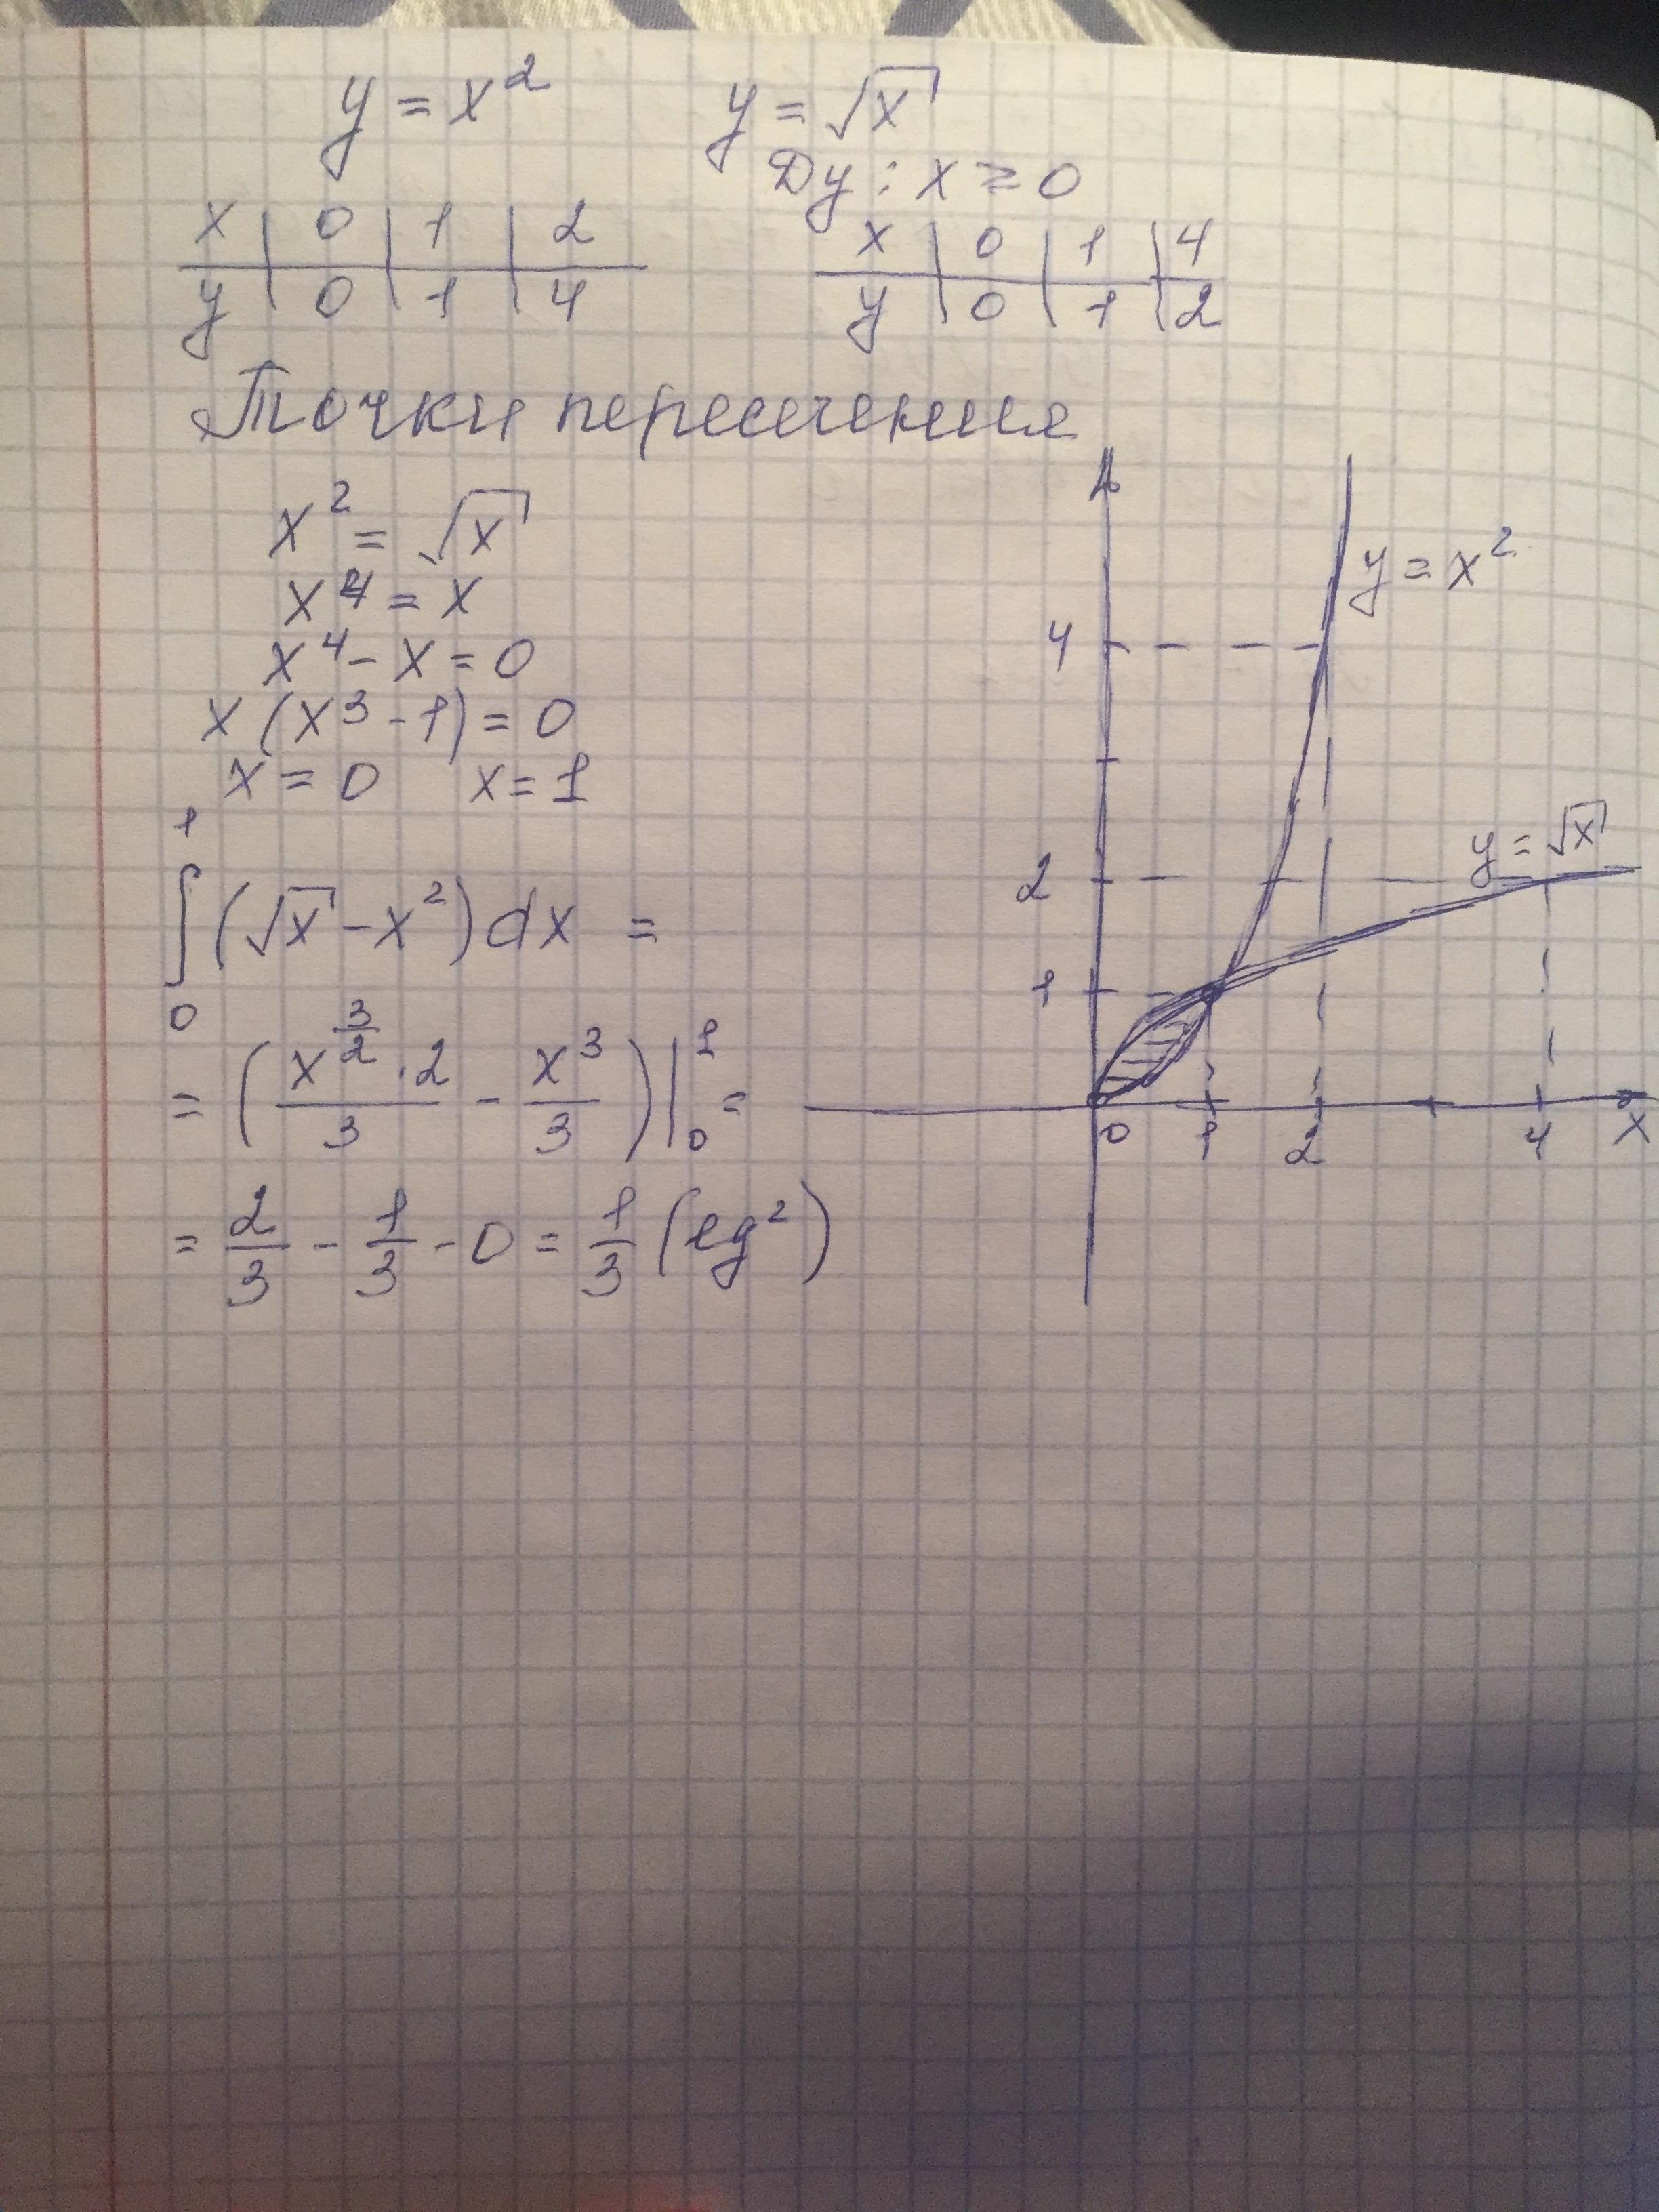 y = x² y = √x
Dy : x ≥ 0
x | 0 | 1 | 2 x | 0 | 1 | 4
y | 0 | 1 | 4 y | 0 | 1 | 2
Точки пересечения
x² = √x
x⁴ = x
x⁴ - x = 0
x (x³ - 1) = 0
x = 0 x = 1
∫₀¹ (√x - x²) dx =
= (x^(3/2) · 2 / 3 - x³/3) |₀¹ =
= 2/3 - 1/3 - 0 = 1/3 (eg²)
y = x²
4
y = √x
2
1
0 1 2 4 x